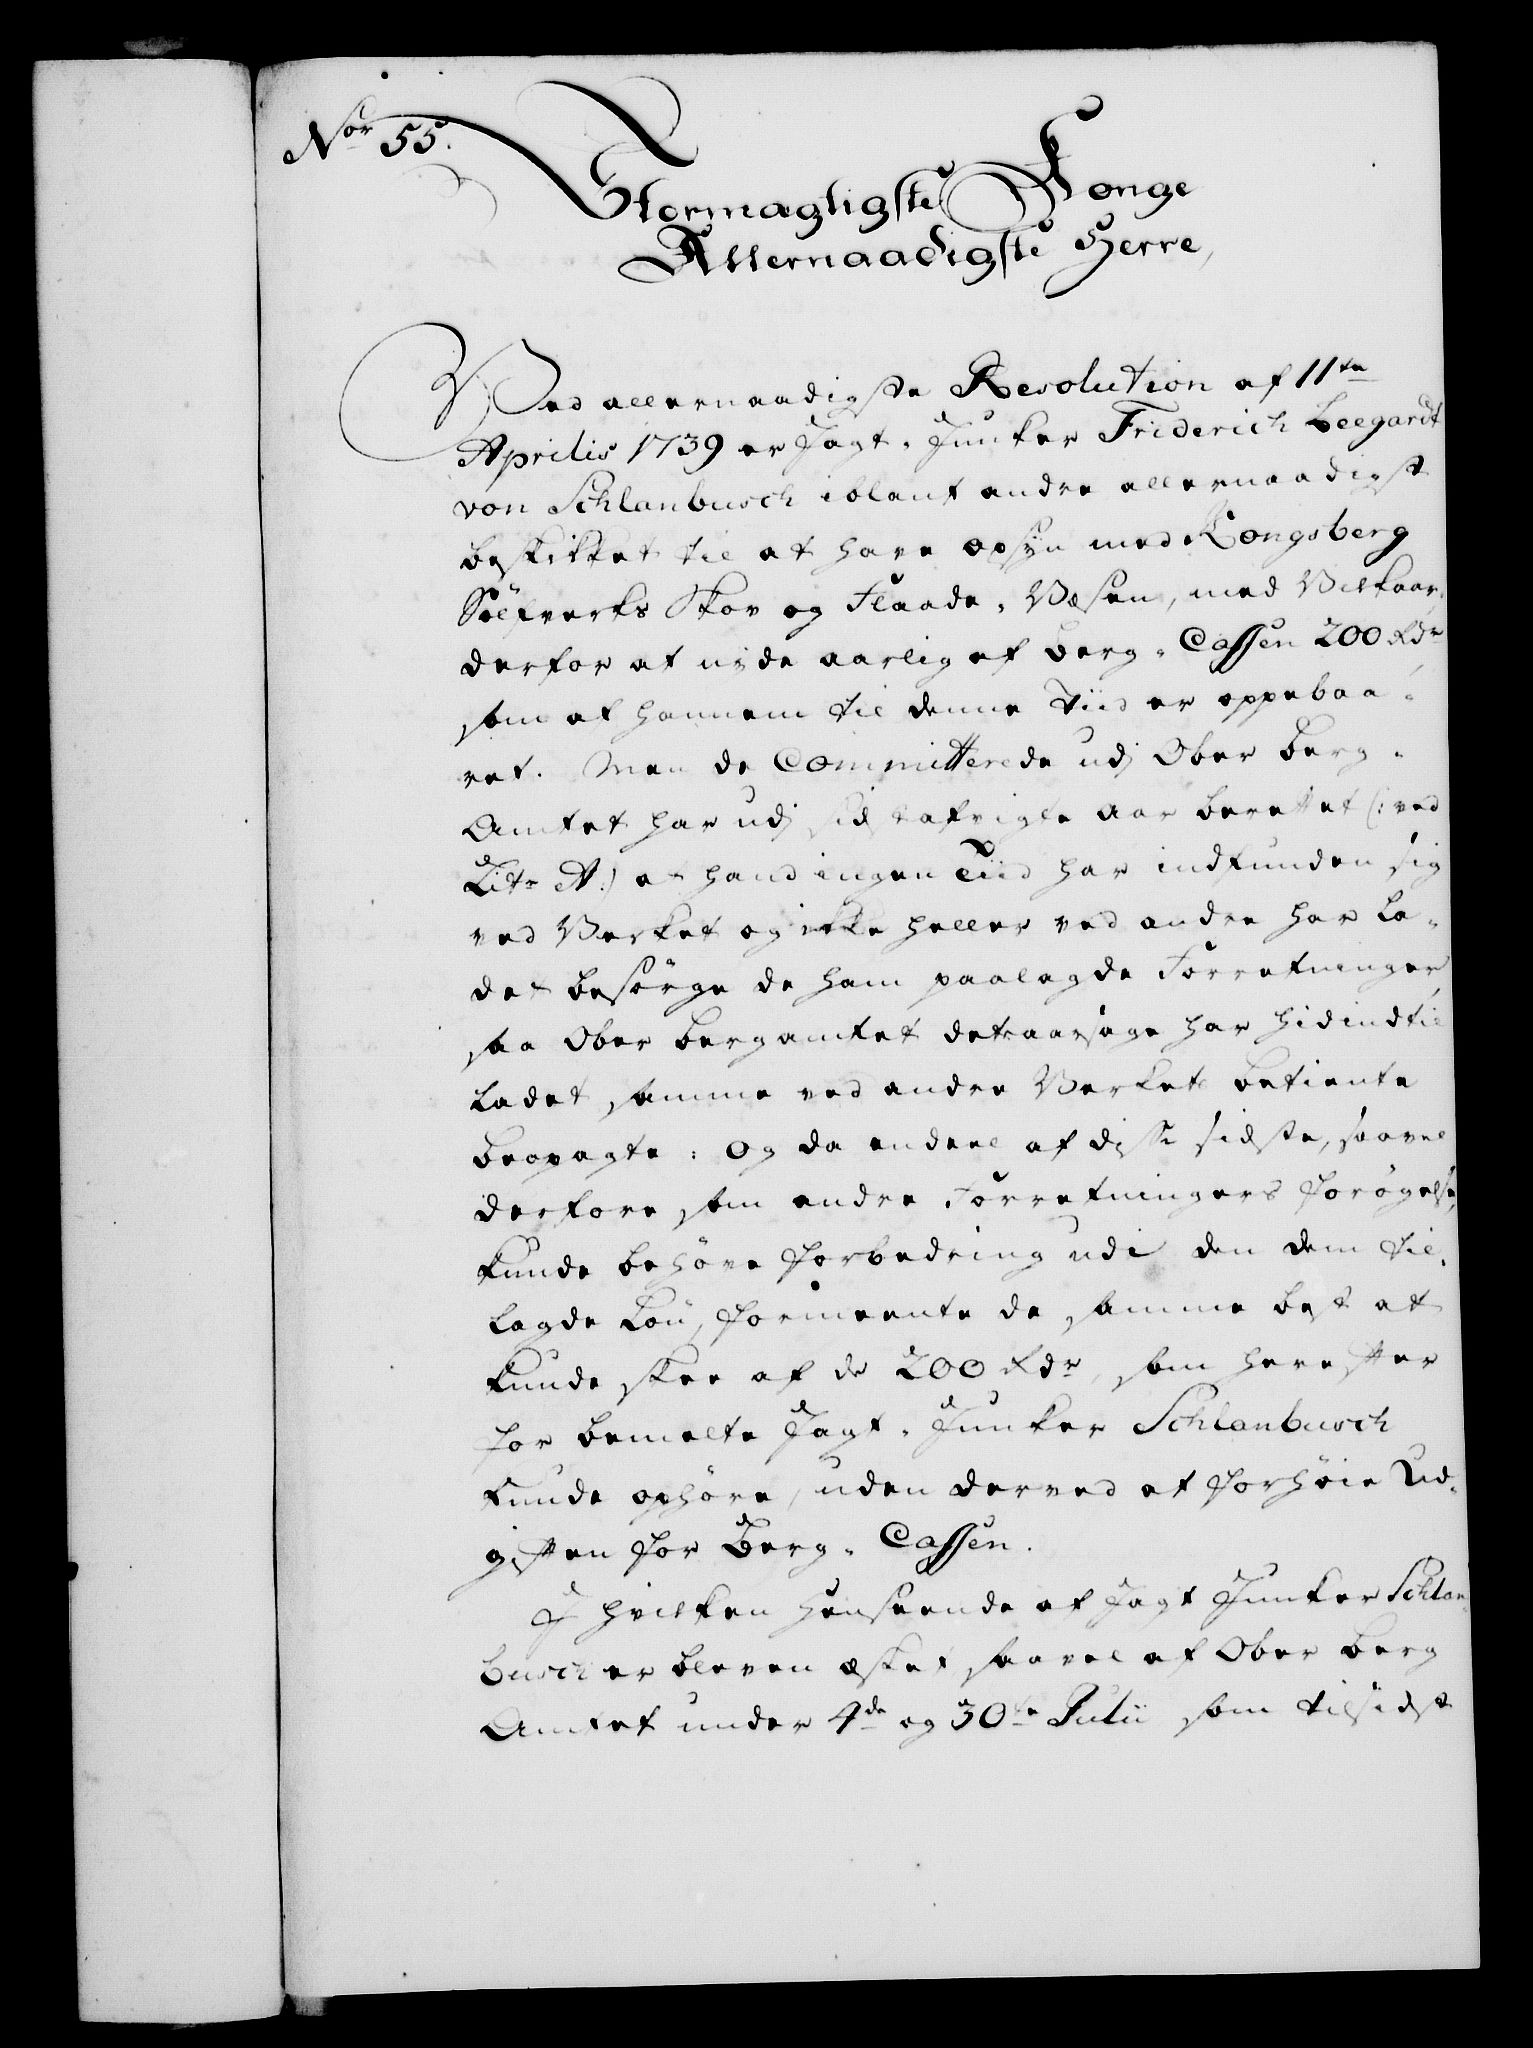 Nor 55.
Stormægtigste Konge
Allernaadigste Herre,
Ved allernaadigste Resolution af 11te
Aprilis 1739 er Jagt-Junker Friderich Leegardt
von Schlanbusch iblant andre allernaadigst
beskikket til at have opsÿn med Kongsberg
Sölfverks Skov og Flaade-Væsen, med Vilkaar,
derfor at nÿde aarlig af Berg-Cassen 200 Rdr
som af hannem til denne Tiid er oppebaa-
ret. Men de Committerede udj Ober Berg-
Amtet har udj sidstafvigte Aar berettet (: ved
Litr A:) at hand ingen Tiid har indfunden sig
ved Verket og ikke heller ved andre har la-
det besörge de ham paalagde Forretninger,
saa Ober Bergamtet det aarsage har hidindtil
ladet samme ved andre Verkets betiente
beopagte: Og da endeel af disse sidste, saavel
derfore som andre Forretningers forögelse,
kunde behöve forbedring udi den dem til-
lagde Lön, formeente de samme best at
kunde skee af de 200 Rdr, som herefter
for bemelte Jagt-Junker Schlanbusch
kunde ophöre, uden derved at forhöie Ud-
giften for Berg-Cassen.
J hvilken henseende af Jagt Junker Schlan-
busch er bleven æsket saavel af Ober Berg
Amtet under 4de og 30te Julii som tilsidst